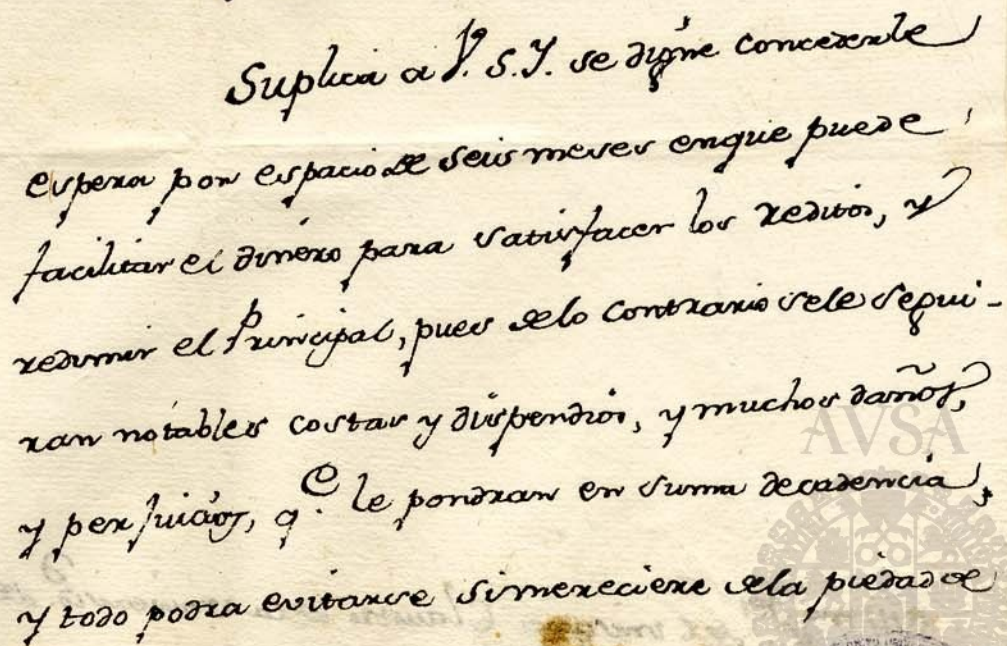 Suplica a V. S. Y. se digne concederle
espera por espacio de seis meses enque puede
facilitar el dinero para satisfacer los reditos, y
redimir el Principal, pues delo contrario sele segui-
ran notables costas y dispendios, y muchos daños,
y perjuicios, q.e le pondran en suma decadencia,
y todo podra evitarse simereciere dela piedad de
AVSA